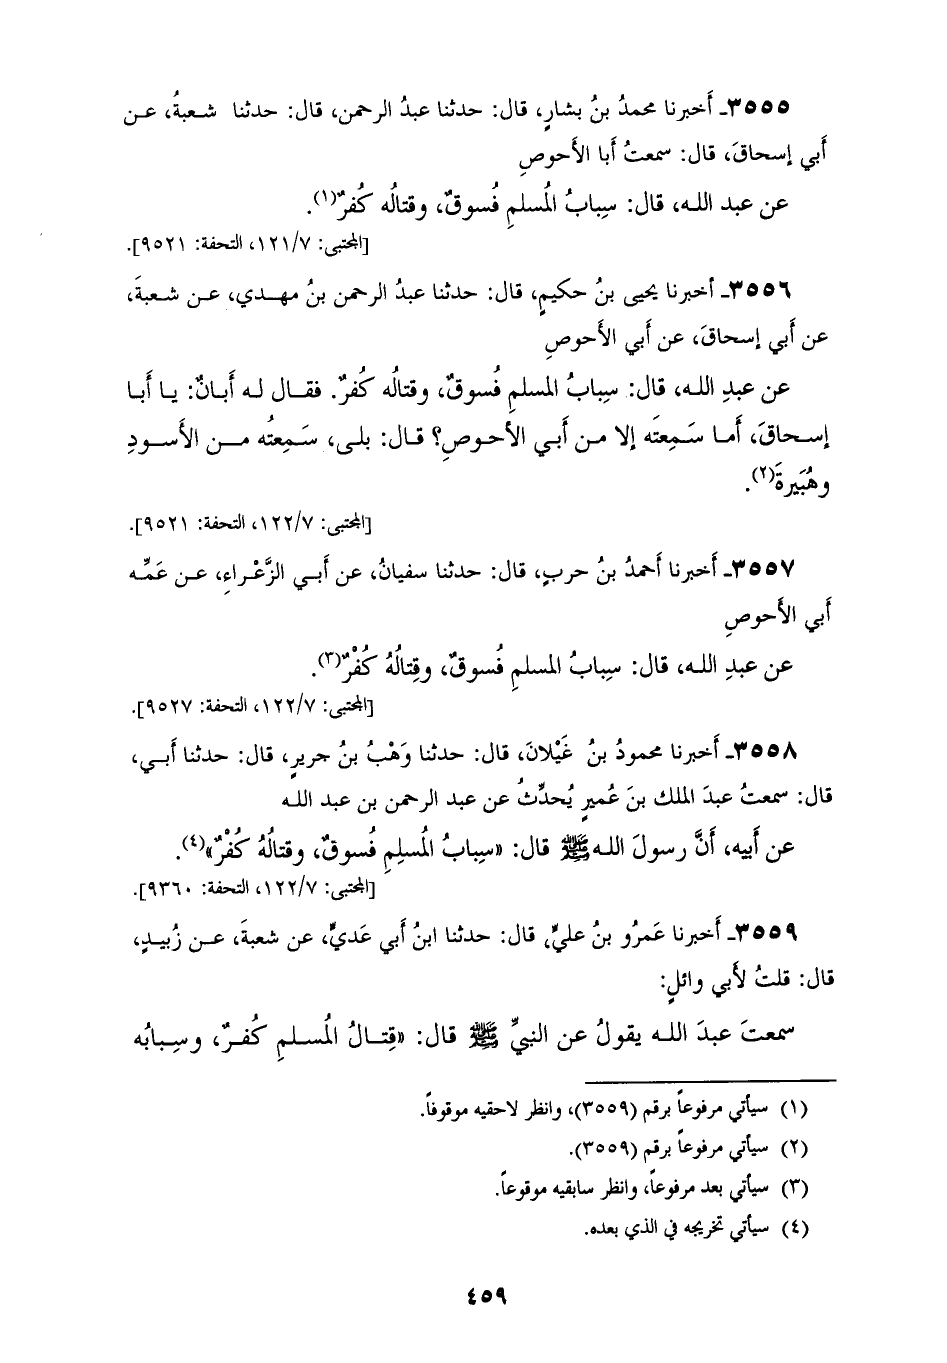 ٣٥٥٥ـ أَخبرنا محمدُ بنُ بشارٍ، قال: حدثنا عبدُ الرحمن، قال: حدثنا شعبةُ، عن
أَبي إسحاقَ، قال: سمعتُ أبا الأَحوصِ
عن عبد الله، قال: سِبابُ المُسلمِ فُسوقٌ، وقتالُه كُفرٌ(١).
[المجتبى: ١٢١/٧، التحفة: ٩٥٢١].
٣٥٥٦ـ أخبرنا يحيى بنُ حكيمٍ، قال: حدثنا عبدُ الرحمن بنُ مهدي، عن شعبةَ،
عن أَبي إسحاقَ، عن أَبي الأَحوصِ
عن عبدِ الله، قال: سِبابُ المسلمِ فُسوقٌ، وقتالُه كُفرٌ. فقال له أَبانٌ: يا أَبا
إسحاقَ، أَما سَمِعتَه إلا من أَبي الأحوصِ؟ قال: بلى، سَمِعتُه من الأَسودِ
وهُبَيرةَ(٢).
[المجتبى: ١٢٢/٧، التحفة: ٩٥٢١].
٣٥٥٧ـ أَخبرنا أَحمدُ بنُ حربٍ، قال: حدثنا سفيانُ، عن أَبي الزَّعْراءِ، عن عَمِّه
أَبي الأَحوصِ
عن عبدِ الله، قال: سِبابُ المسلمِ فُسوقٌ، وقِتالُهُ كُفْرٌ(٣).
[المجتبى: ١٢٢/٧، التحفة: ٩٥٢٧].
٣٥٥٨ـ أَخبرنا محمودُ بنُ غَيْلانَ، قال: حدثنا وَهْبُ بنُ جريرٍ، قال: حدثنا أَبي،
قال: سمعتُ عبدَ الملك بنَ عُميرٍ يُحدِّثُ عن عبد الرحمن بن عبد الله
عن أَبيه، أَنَّ رسولَ الله ﷺ قال: «سِبابُ المُسلِمِ فُسوقٌ، وقتالُهُ كُفْرٌ»(٤).
[المجتبى: ١٢٢/٧، التحفة: ٩٣٦٠].
٣٥٥٩ـ أَخبرنا عَمرُو بنُ عليٍّ، قال: حدثنا ابنُ أَبي عَديٍّ، عن شعبةَ، عن زُبيدٍ،
قال: قلتُ لأَبي وائلٍ:
سمعتَ عبدَ الله يقولُ عن النبيِّ ﷺ قال: «قِتالُ المُسلمِ كُفرٌ، وسِبابُه
(١) سيأتي مرفوعاً برقم (٣٥٥٩)، وانظر لاحقيه موقوفاً.
(٢) سيأتي مرفوعاً برقم (٣٥٥٩).
(٣) سيأتي بعد مرفوعاً، وانظر سابقيه موقوعاً.
(٤) سيأتي تخريجه في الذي بعده.
٤٥٩